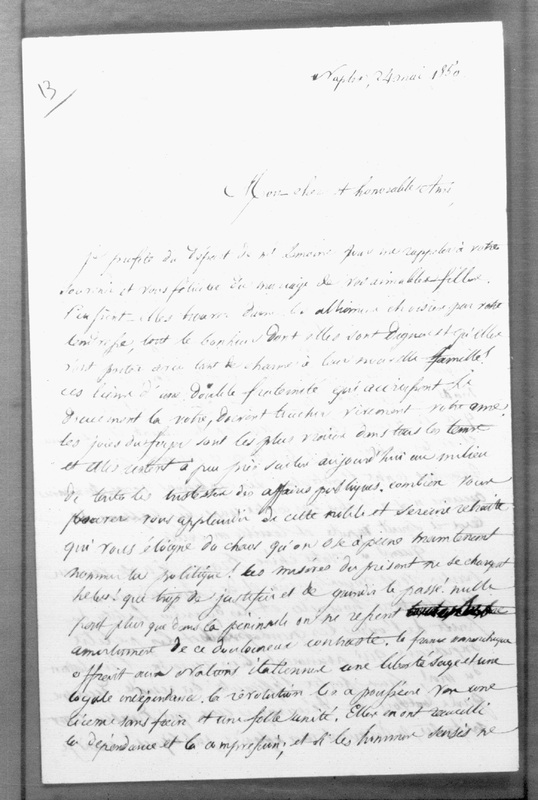 13
Naples, 24 mai 1850
Mon cher et honorable Ami,
Je profite du départ de Mr pour me rappeler à votre
souvenir et vous féliciter du mariage de vos aimables filles.
elles dans les choisies par votre
tout le bonheur dont elles sont dignes et qu'elles
vont porter avec tant de charme à leur nouvelle famille!
ces liens d'une double qui
la vôtre, doivent toucher vivement votre ame.
les joies du foyer sont les plus vraies dans tous les tems
et elles restent à peu près seules aujourd'hui au milieu
de toutes les tristesses des affaires publiques. combien vous
pouvez vous applaudir de cette noble et sereine retraite
qui vous éloigne du chaos qu'on ose à peine maintenant
nommer la politique! les misères du présent ne se chargent
helas! que trop de justifier et de grandir le passé. nulle
part plus que dans la péninsule on ne ressent
amèrement de ce douloureux contraste. la france monarchique
offrait aux nations italiennes une liberté sage et une
loyale indépendance. la révolution les a poussées vers une
licence sans frein et une folle unité. Elles en ont recueilli
la dépendance et la compression, et si les hommes sensés ne